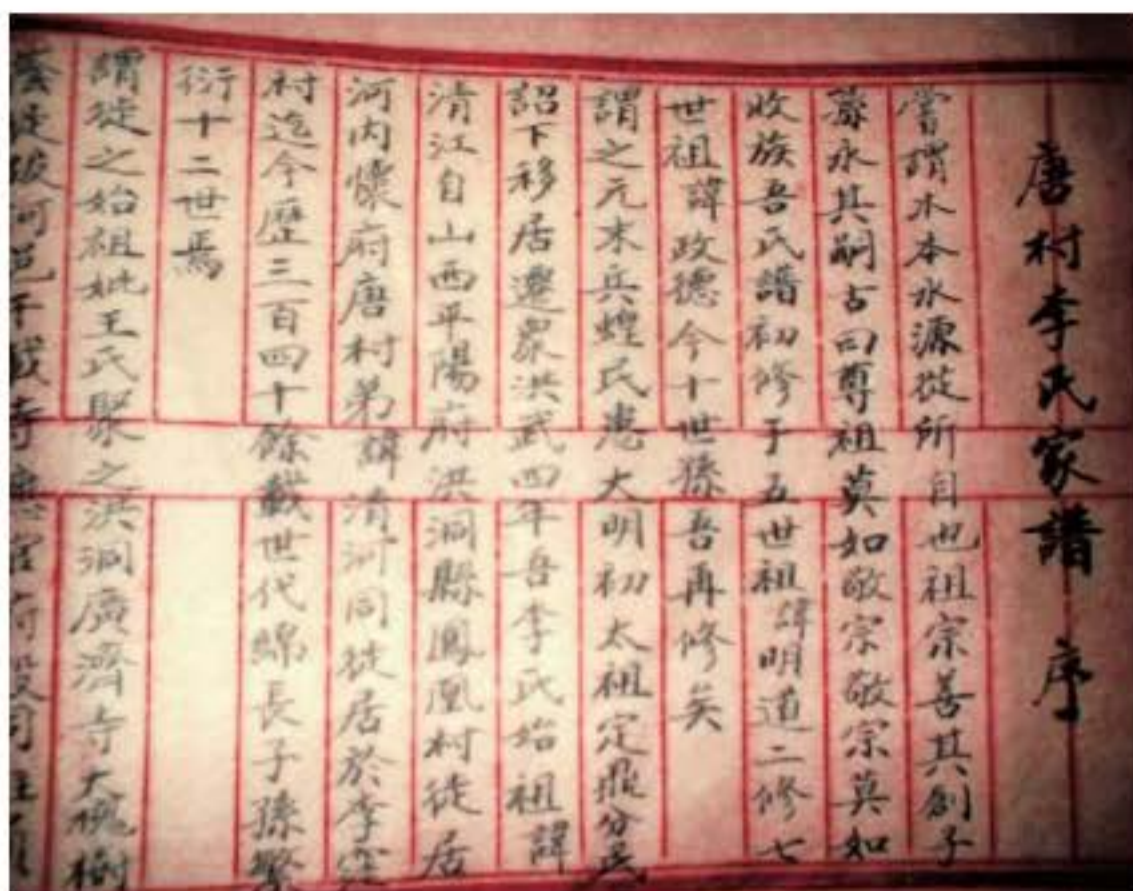 唐村李氏家譜序
嘗謂水本水源從所自也祖宗善其創子
募永其嗣古曰尊祖莫如敬宗敬宗莫如
收族吾氏譜初修于五世祖諱明道二修七
世祖諱政德今十世孫吾再修矣
謂之元末兵蝗民患大明初太祖定鼎分民
詔下移居遷眾洪武四年吾李氏始祖諱
清江自山西平陽府洪洞縣鳳凰村徙居
河內懷府唐村弟諱清河同徙居於李窪
村迄今歷三百四十餘載世代綿長子孫繁
衍十二世焉
謂徙之始祖妣王氏聚之洪洞廣濟寺大槐樹